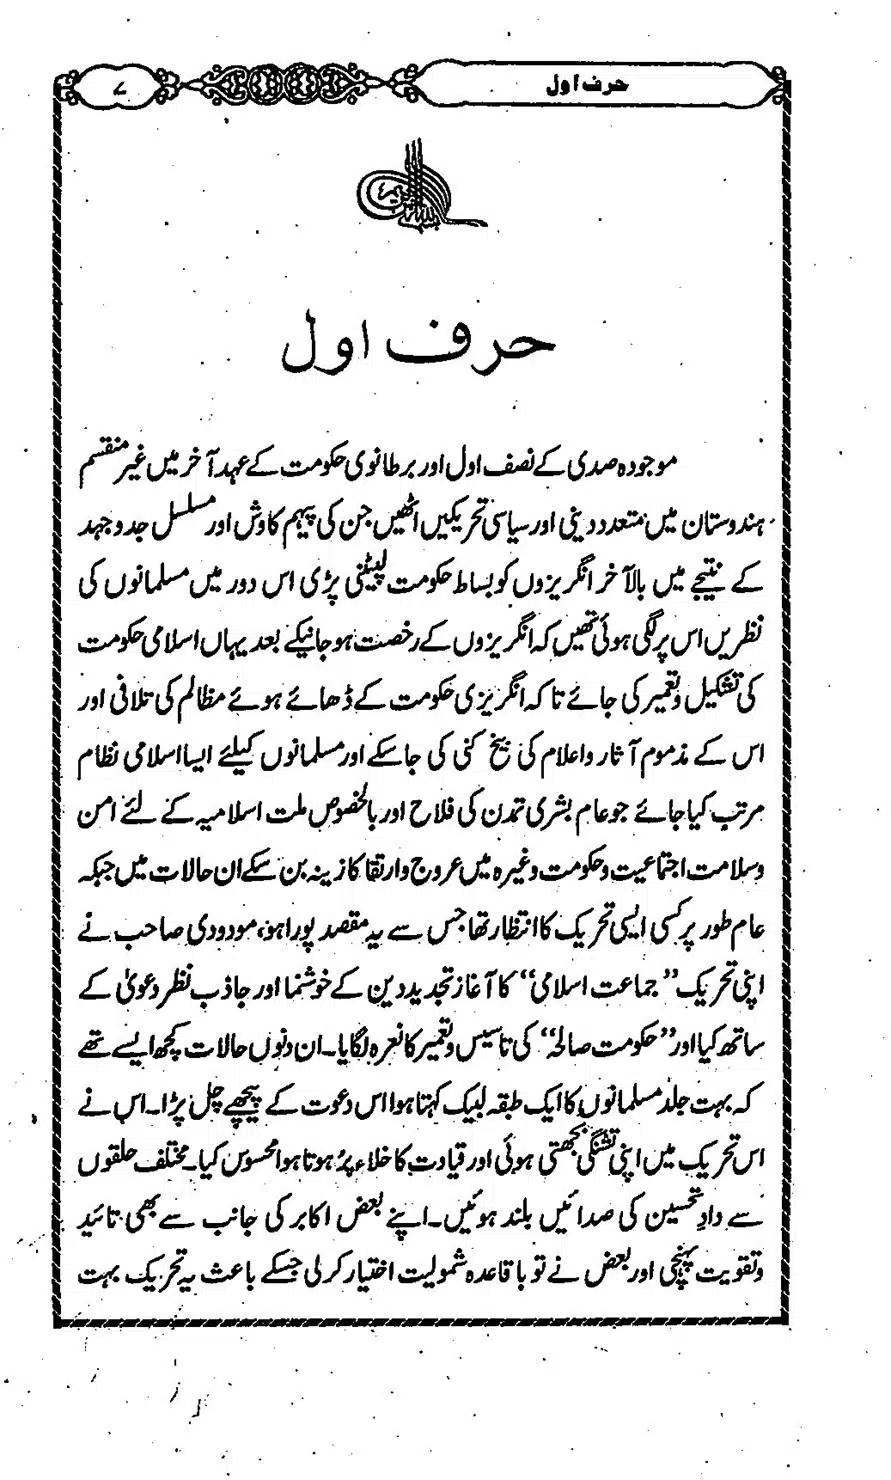 حرف اول
۷
حرف اول
موجودہ صدی کے نصف اول اور برطانوی حکومت کے عہد آخر میں غیر منقسم
ہندوستان میں متعدد دینی اور سیاسی تحریکیں اٹھیں جن کی پیہم کاوش اور مسلسل جدوجہد
کے نتیجے میں بالآخر انگریزوں کو بساط حکومت لپیٹنی پڑی اس دور میں مسلمانوں کی
نظریں اس پر لگی ہوئی تھیں کہ انگریزوں کے رخصت ہو جانیکے بعد یہاں اسلامی حکومت
کی تشکیل وتعمیر کی جائے تاکہ انگریزی حکومت کے ڈھائے ہوئے مظالم کی تلافی اور
اس کے مذموم آثار واعلام کی بیخ کنی کی جاسکے اور مسلمانوں کیلئے ایسا اسلامی نظام
مرتب کیا جائے جو عام بشری تمدن کی فلاح اور بالخصوص ملت اسلامیہ کے لئے امن
وسلامت اجتماعیت وحکومت وغیرہ میں عروج وارتقا کا زینہ بن سکے ان حالات میں جبکہ
عام طور پر کسی ایسی تحریک کا انتظار تھا جس سے یہ مقصد پورا ہو، مودودی صاحب نے
اپنی تحریک ”جماعت اسلامی“ کا آغاز تجدید دین کے خوشنما اور جاذب نظر دعویٰ کے
ساتھ کیا اور ”حکومت صالحہ“ کی تاسیس وتعمیر کا نعرہ لگایا۔ ان دنوں حالات کچھ ایسے تھے
کہ بہت جلد مسلمانوں کا ایک طبقہ لبیک کہتا ہوا اس دعوت کے پیچھے چل پڑا۔ اس نے
اس تحریک میں اپنی تشنگی بجھتی ہوئی اور قیادت کا خلاء پر ہوتا ہوا محسوس کیا۔ مختلف حلقوں
سے دادِ تحسین کی صدائیں بلند ہوئیں۔ اپنے بعض اکابر کی جانب سے بھی تائید
وتقویت پہنچی اور بعض نے تو باقاعدہ شمولیت اختیار کرلی جسکے باعث یہ تحریک بہت